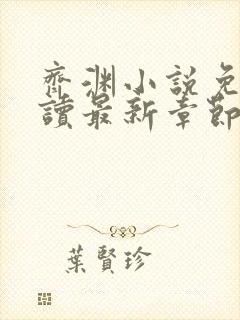 齊淵小說免
讀最新章節
葉賢珍